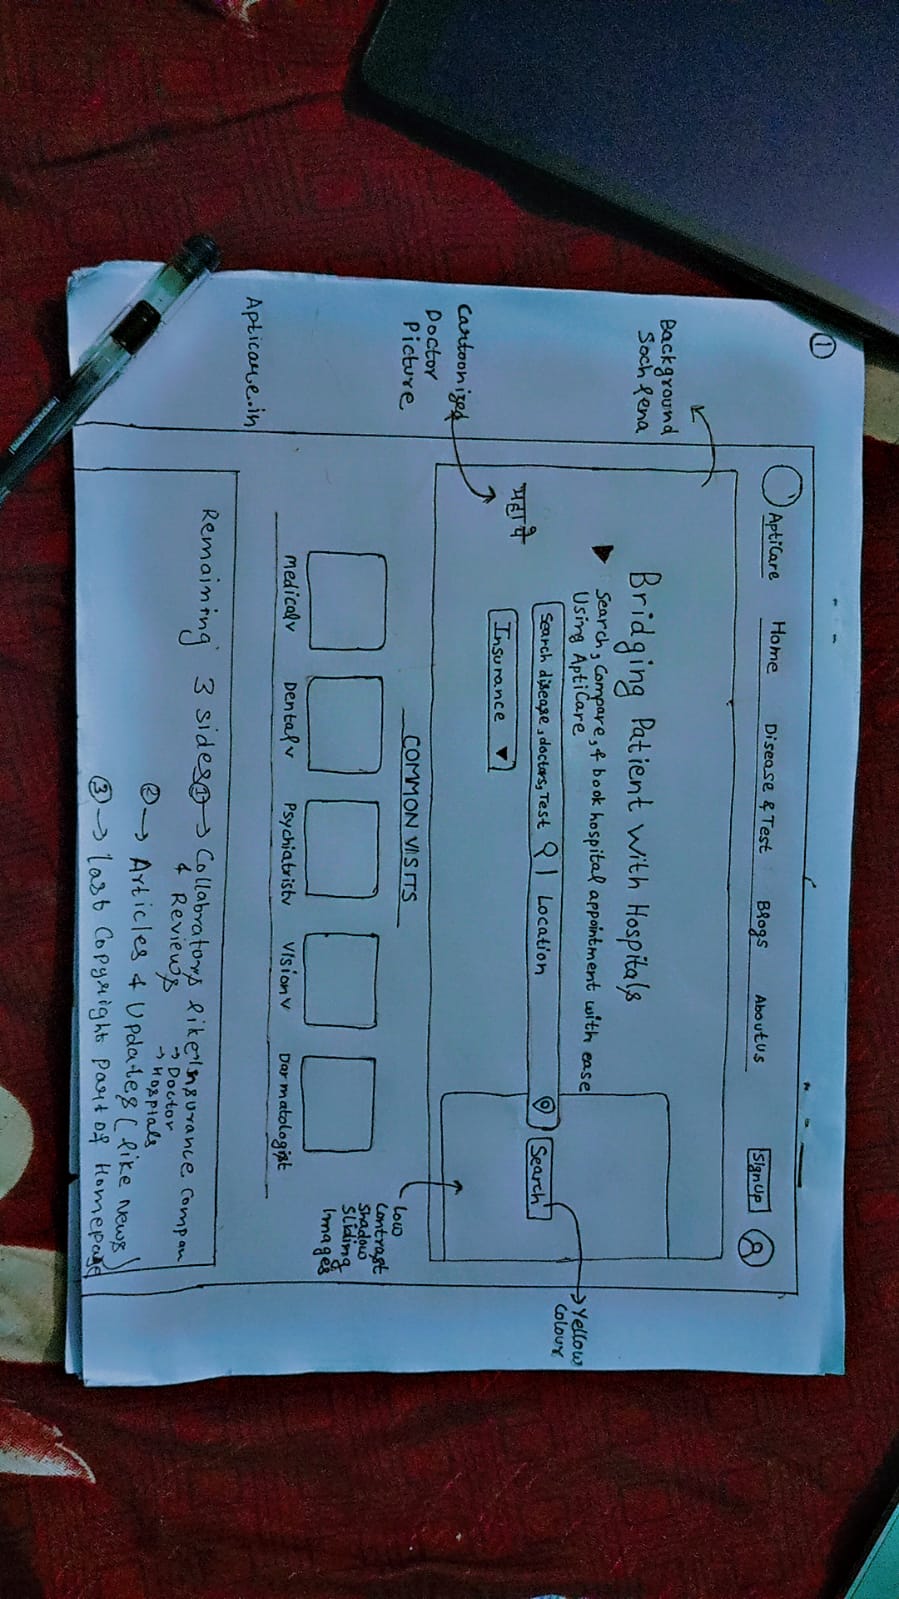 1
AptiCare Home Disease & Test Blogs About Us Sign Up
Background
Soch lena
Bridging Patient With Hospitals
Search, Compare, & book hospital appointment with ease
Using AptiCare
Search disease, doctors, Test Location Search
Yellow
Colour
यहा पे
Insurance
Cartoonized
Doctor
Picture
COMMON VISITS
Low
Contrast
Shadow
Sliding
Images
Medical v Dental v Psychiatrist v Vision v Darmatologist
Apticare.in
Remaining 3 sides ① → Collabrators like → Insurance Compan
& Reviews → Doctor
→ Hospials
② → Articles & Updates (like News)
③ → last Copyright part of Homepage